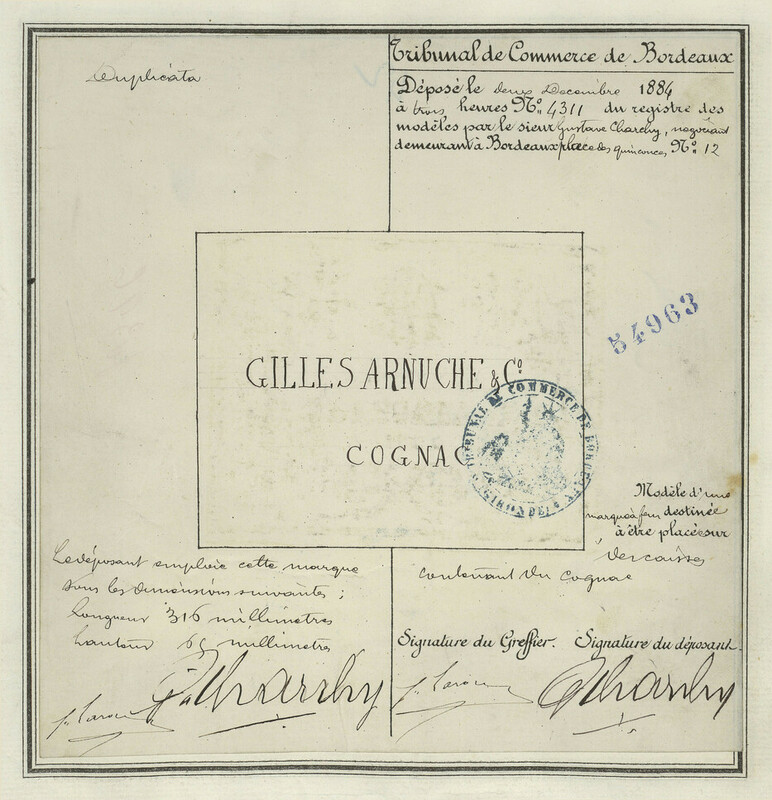 Duplicata
Tribunal de Commerce de Bordeaux
Déposé le deux Decembre 1884
à trois heures N° 4311 du registre des
modèles par le sieur Gustave Charchy, négociant
demeurant à Bordeaux place des quinconces N° 12
54963
GILLES ARNUCHE & C°
COGNAC
TRIBUNAL DE COMMERCE DE BORDEAUX
GIRONDE
Modèle d'une
marque à feu destinée
à être placée sur
des caisses
contenant du cognac
Le déposant emploie cette marque
sous les dimensions suivantes ;
longueur 316 millimetres
hauteur 65 millimetres
Signature du Greffier. Signature du déposant